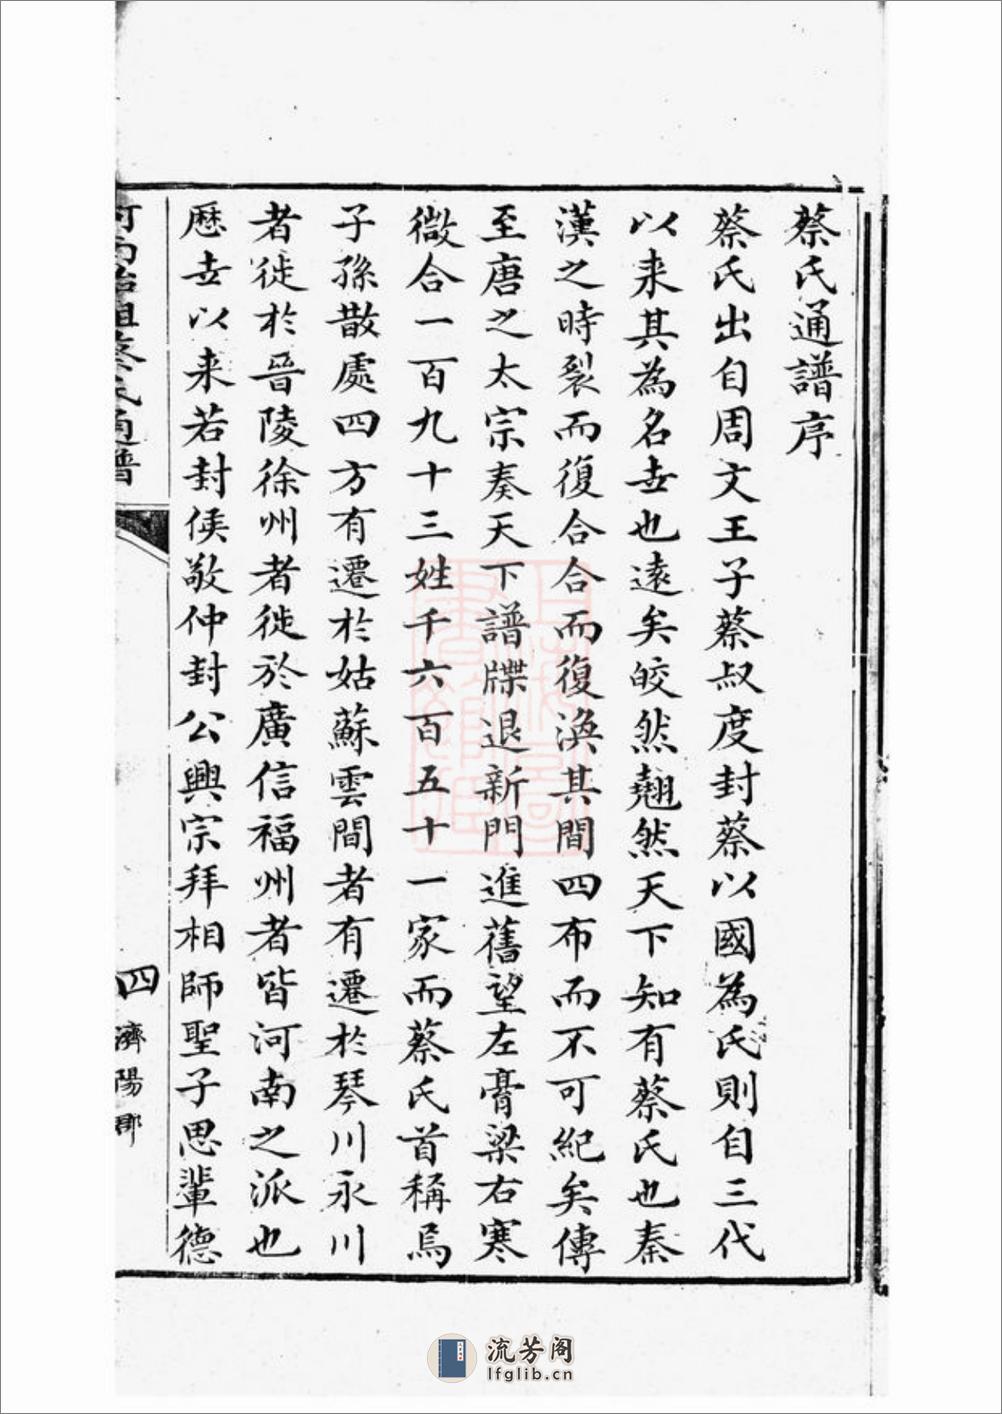 蔡氏通譜序
蔡氏出自周文王子蔡叔度封蔡以國為氏則自三代
以来其為名世也遠矣皎然翹然天下知有蔡氏也秦
漢之時裂而復合合而復渙其間四布而不可紀矣傳
至唐之太宗奏天下譜牒退新門進舊望左膏梁右寒
微合一百九十三姓千六百五十一家而蔡氏首稱焉
子孫散處四方有遷於姑蘇雲間者有遷於琴川永川
者徙於晉陵徐州者徙於廣信福州者皆河南之派也
歷世以来若封侯敬仲封公興宗拜相師聖子思輩德
蔡氏通譜
四
濟陽郡
流芳阁
lfglib.cn